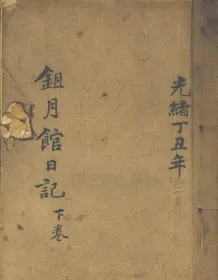 光緒丁丑年
鉏月館日記 下卷